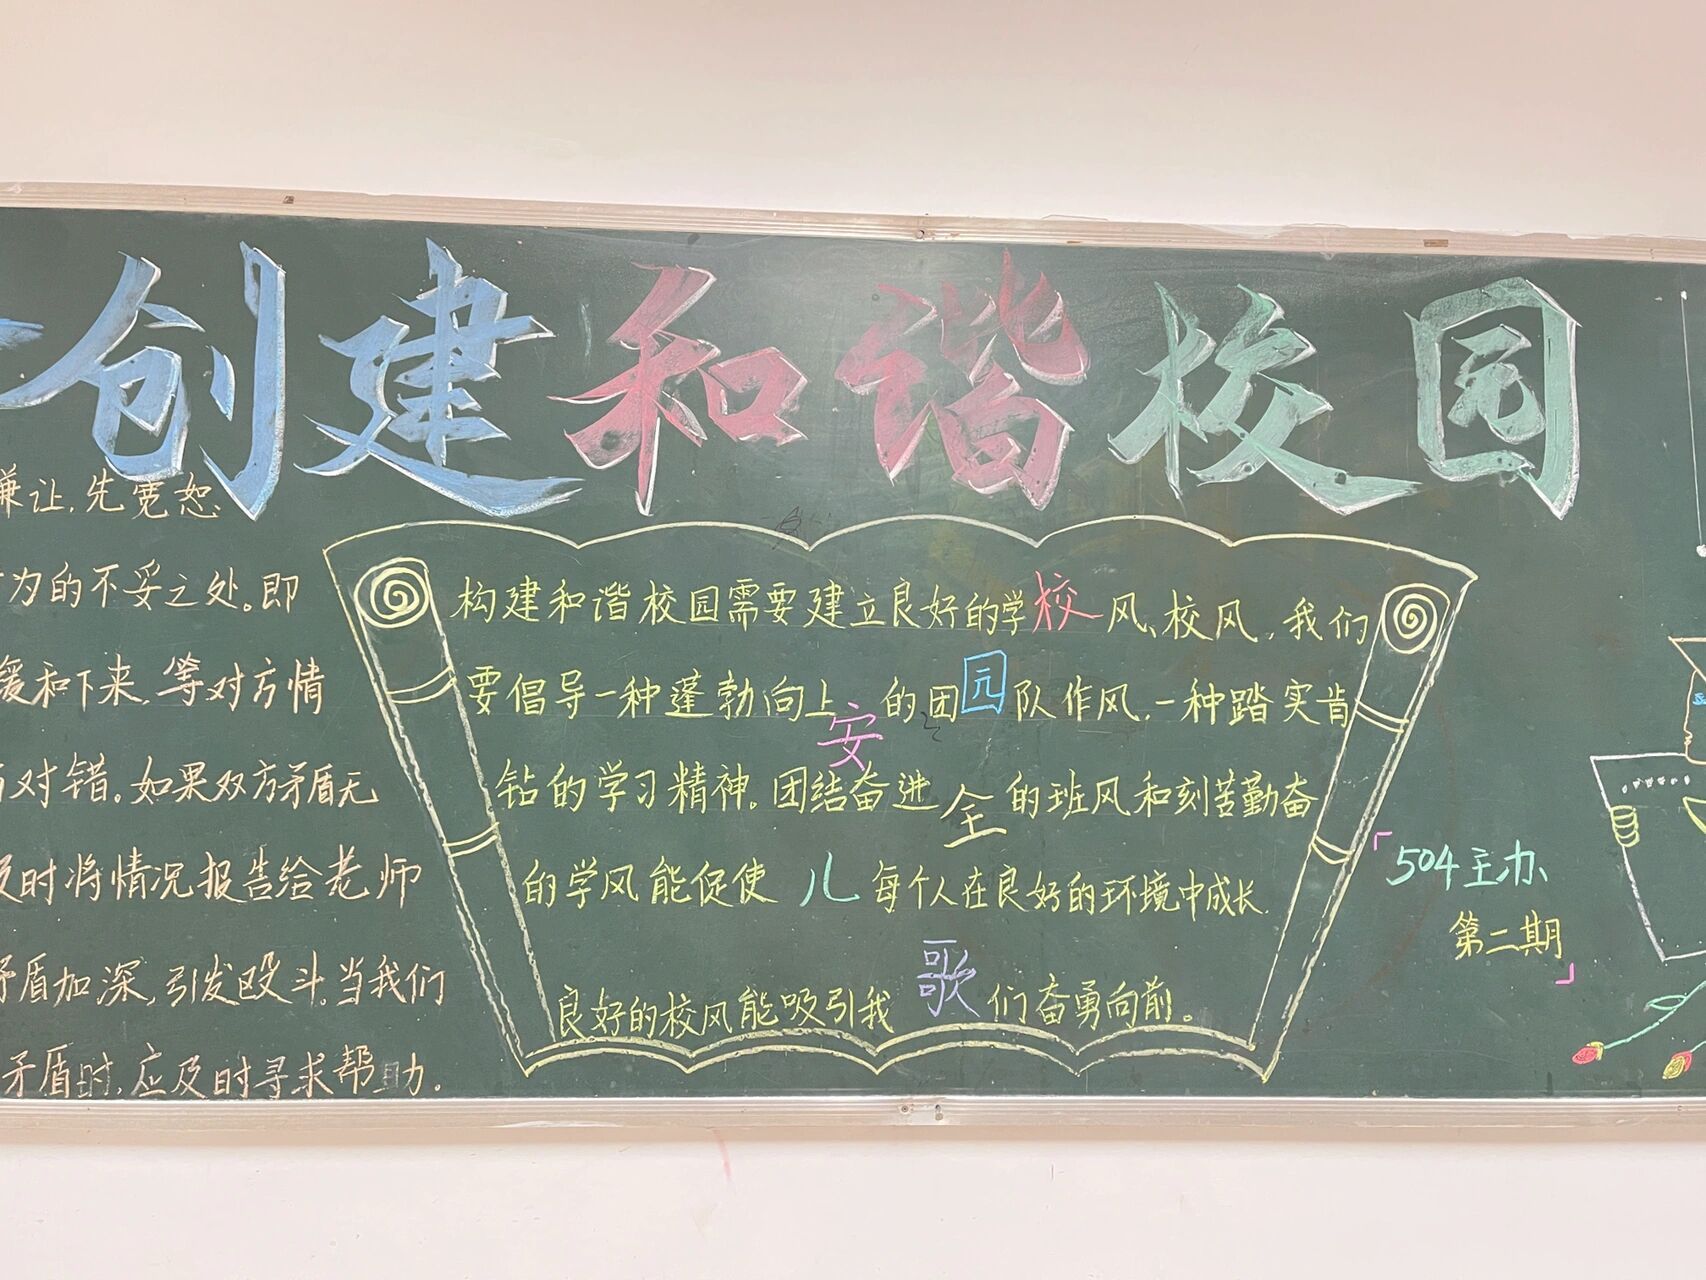 创建和谐校园
谦让，先宽恕
为的不妥之处。即
缓和下来，等对方情
对错。如果双方矛盾无
及时将情况报告给老师
矛盾加深，引发殴斗。当我们
矛盾时，应及时寻求帮助。
构建和谐校园需要建立良好的学校风、校风，我们
要倡导一种蓬勃向上安的团园队作风，一种踏实肯
钻的学习精神。团结奋进全的班风和刻苦勤奋
的学风能促使儿每个人在良好的环境中成长，
良好的校风能吸引我歌们奋勇向前。
「504主办、
第二期」